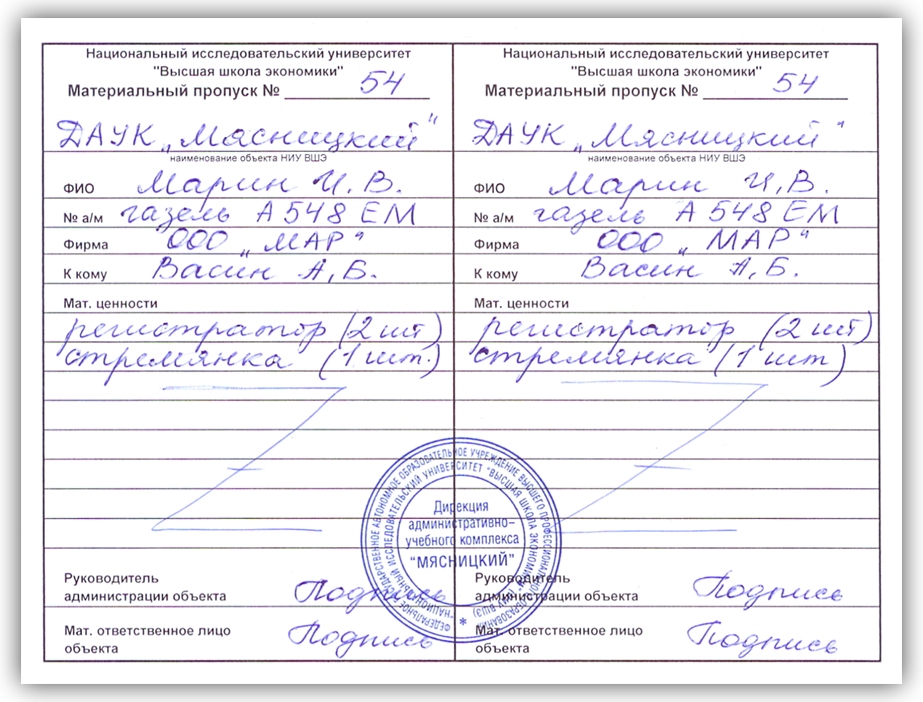 Национальный исследовательский университет
"Высшая школа экономики"
Материальный пропуск № 54
ДАУК „Мясницкий"
наименование объекта НИУ ВШЭ
ФИО Марин И.В.
№ а/м газель А 548 ЕМ
Фирма ООО „МАР"
К кому Васин А,Б.
Мат. ценности
регистратор (2 шт)
стремянка (1 шт.)
Руководитель
администрации объекта Подпись
Мат. ответственное лицо
объекта Подпись
Национальный исследовательский университет
"Высшая школа экономики"
Материальный пропуск № 54
ДАУК „Мясницкий"
наименование объекта НИУ ВШЭ
ФИО Марин И,В.
№ а/м газель А 548 ЕМ
Фирма ООО „МАР"
К кому Васин А,Б.
Мат. ценности
регистратор (2 шт)
стремянка (1 шт)
Руководитель
администрации объекта Подпись
Мат. ответственное лицо
объекта Подпись
ФЕДЕРАЛЬНОЕ ГОСУДАРСТВЕННОЕ АВТОНОМНОЕ ОБРАЗОВАТЕЛЬНОЕ УЧРЕЖДЕНИЕ ВЫСШЕГО ПРОФЕССИОНАЛЬНОГО ОБРАЗОВАНИЯ
"НАЦИОНАЛЬНЫЙ ИССЛЕДОВАТЕЛЬСКИЙ УНИВЕРСИТЕТ "ВЫСШАЯ ШКОЛА ЭКОНОМИКИ" (НИУ ВШЭ)
Дирекция
административно-
учебного комплекса
"МЯСНИЦКИЙ"